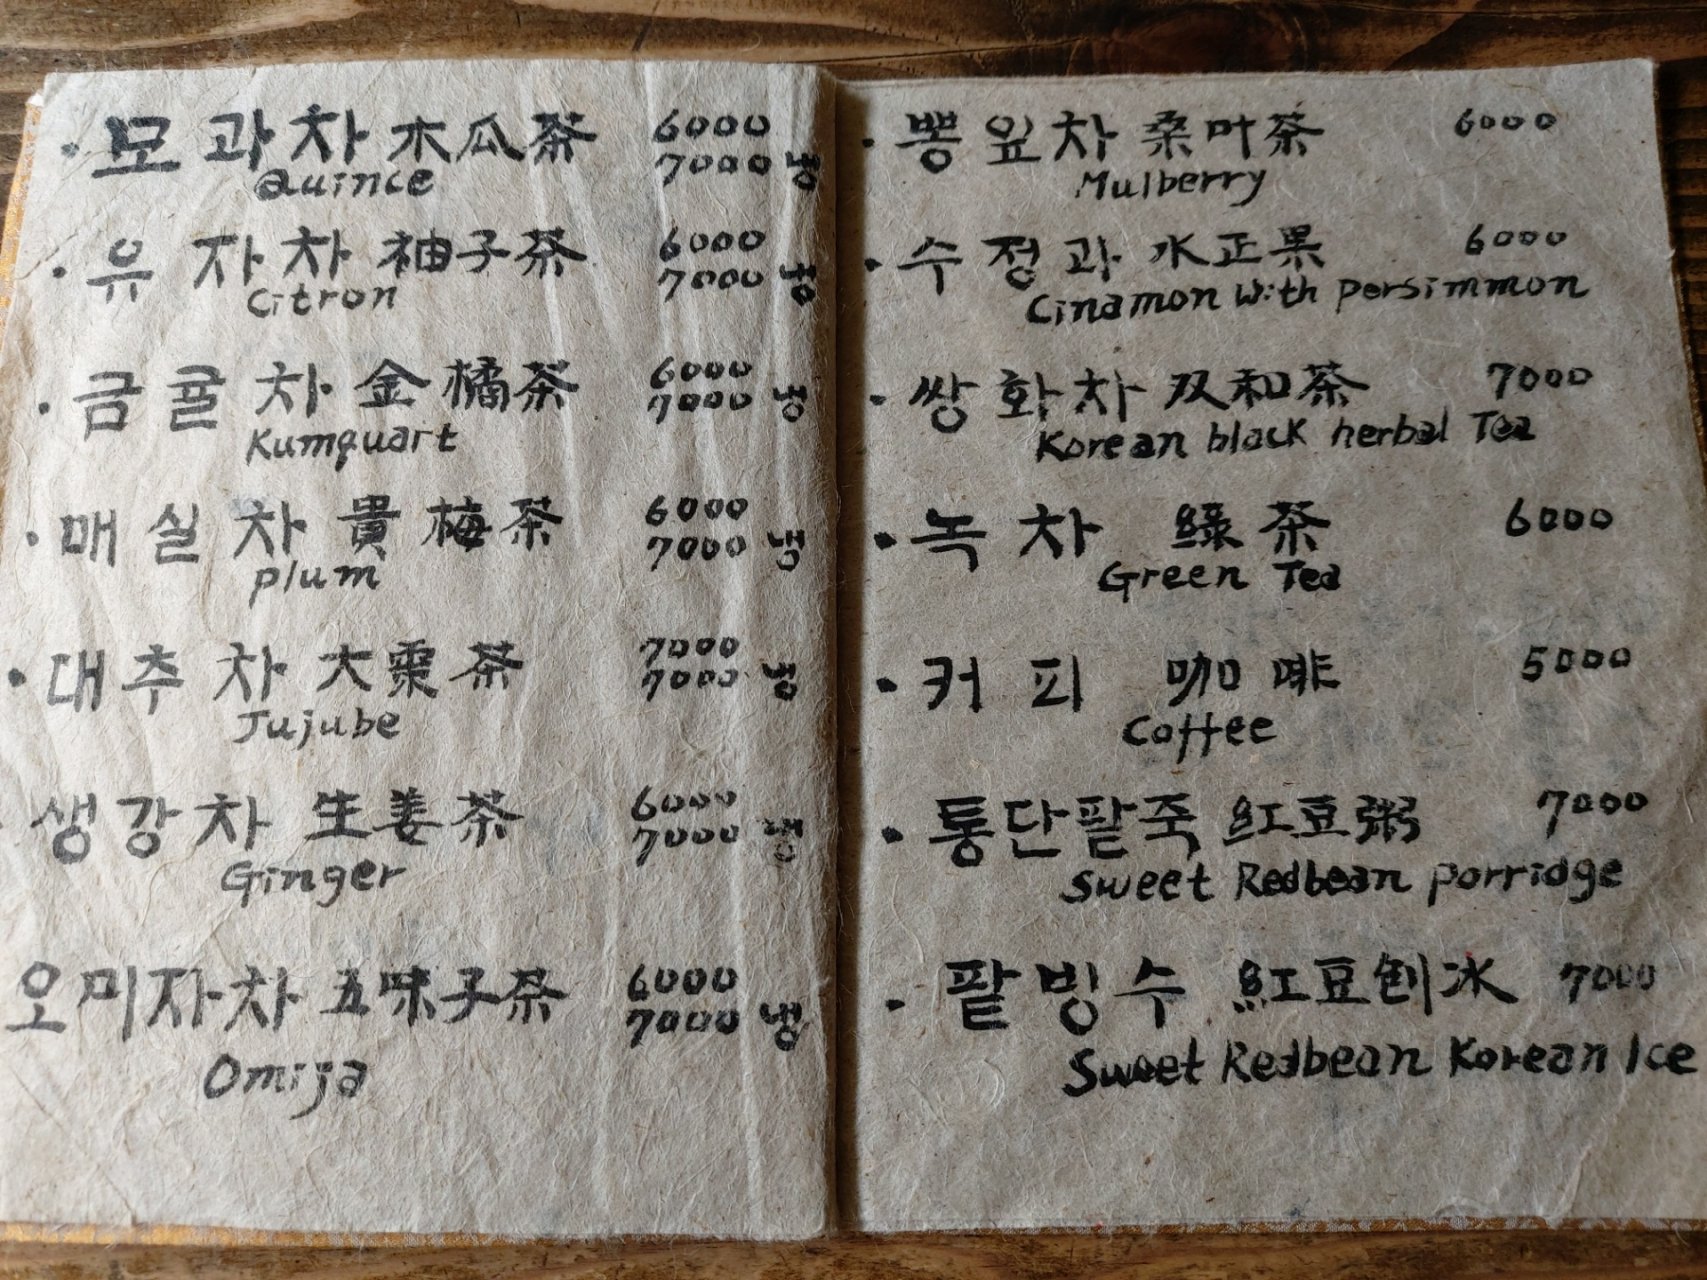 · 모과차 木瓜茶 6000
7000 냉
Quince
· 유자차 柚子茶 6000
7000 냉
Citron
· 금귤차 金橘茶 6000
7000 냉
Kumquart
· 매실차 貴梅茶 6000
7000 냉
plum
· 대추차 大棗茶 7000
7000 냉
Jujube
· 생강차 生姜茶 6000
7000 냉
Ginger
오미자차 五味子茶 6000
7000 냉
Omija
· 뽕잎차 桑叶茶 6000
Mulberry
· 수정과 水正果 6000
Cinamon with persimmon
· 쌍화차 双和茶 7000
Korean black herbal Tea
· 녹차 綠茶 6000
Green Tea
· 커피 咖啡 5000
Coffee
· 통단팥죽 紅豆粥 7000
Sweet Redbean porridge
· 팥빙수 紅豆刨冰 7000
Sweet Redbean Korean Ice